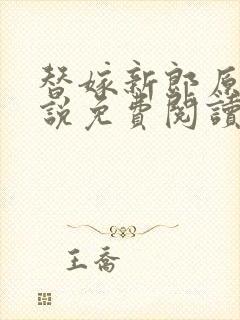 替嫁新郎原
說免費閱讀
王喬